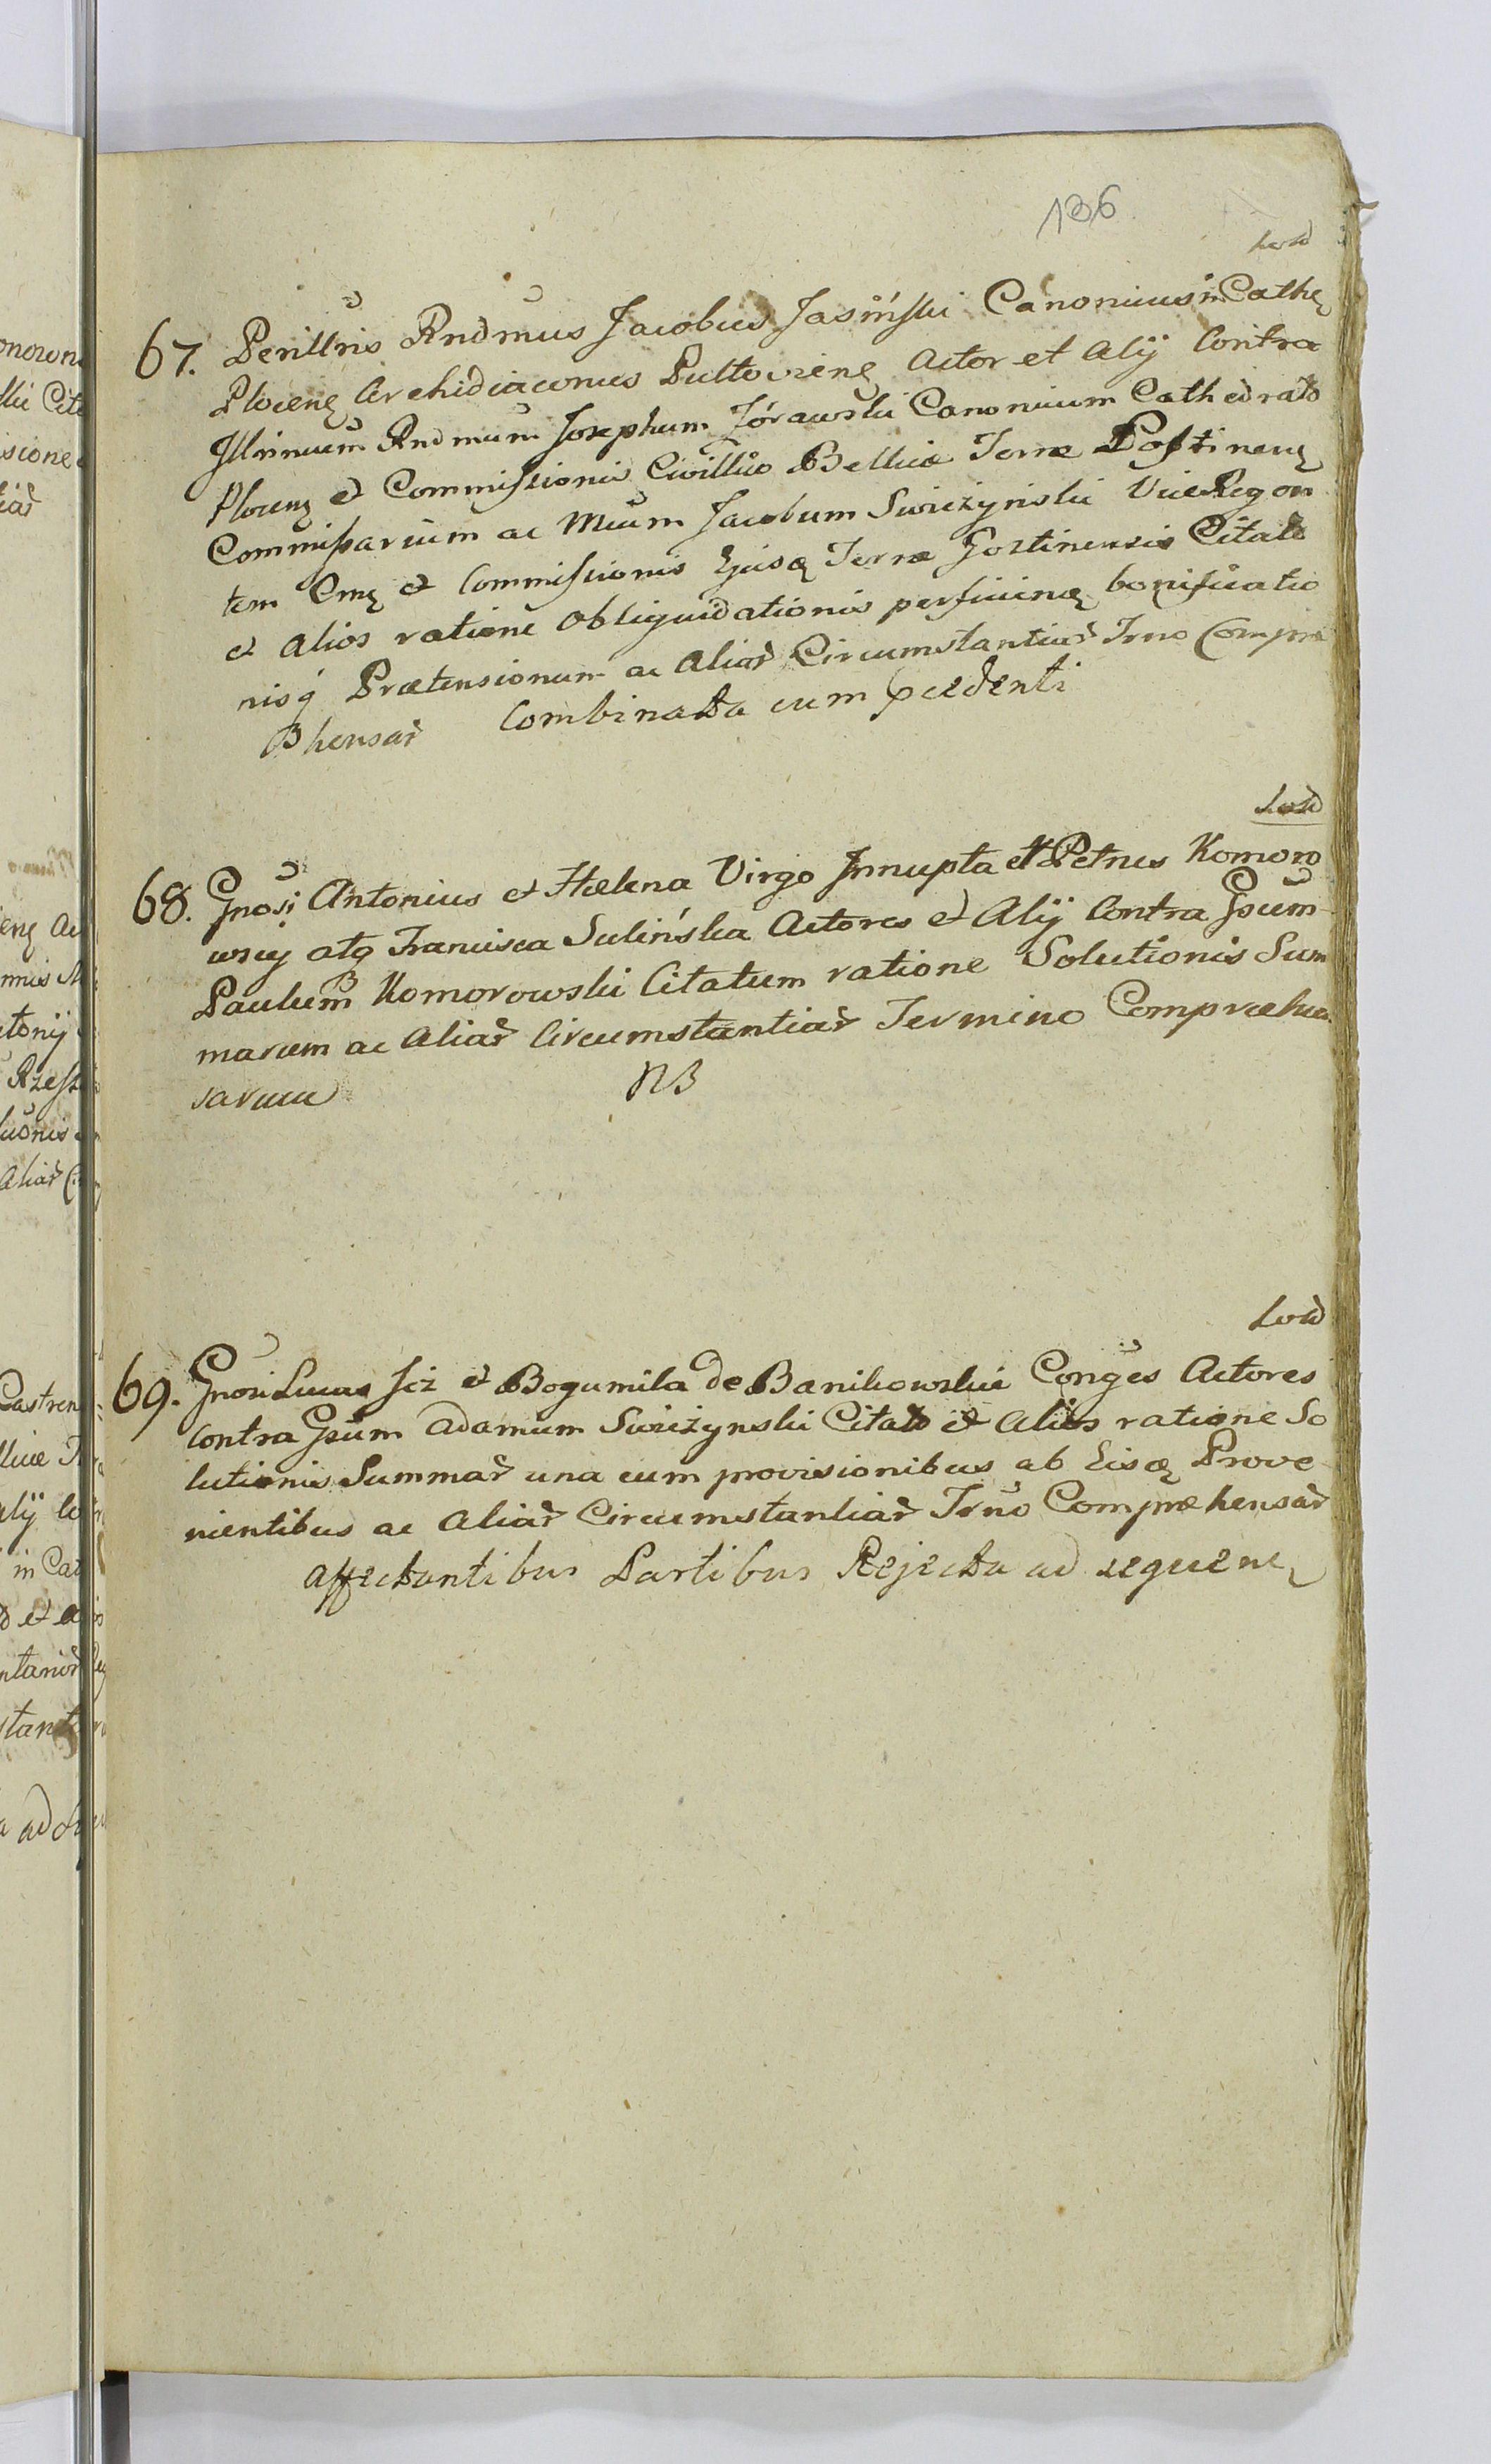 136
67. Perillris Rndmus Jacobus Jasiński Canonicus in Cathę
Plocenę Archidiaconus Pultovienę Actor et Alij Contra
Jllrimum Rndmum Josephum Żórawski Canonicum Cathedrało
Plocenę et Commissionis Civillio Bellicæ Terræ Gostinenę
Commissarium ac Mcum Jacobum Swieżynski ViceRegen
tem Cmę et Commissionis Ejusq Terræ Gostinensis Citało
et Alios ratione Obliquidationis perficienę bonificatio
nisq Prætensionum ac Aliar Circumstantiar Trno Compræ
hensar Combinata cum præcedenti
68. Gnosi Antonius et Helena Virgo Jnnupta et Petrus Komoro
wscy atq Francisca Sulińska Actores et Alij Contra Gsum
Paulum Komorowski Citatum ratione Solutionis Sum
marum ac Aliar Circumstantiar Termino Compræhen
sarum NB
69. Gnosi Lucas Jiż et Bogumila de Banikowskie Conges Actores
Contra Gsum Adamum Swieżynski Citało et Alios ratione So
lutionis Summar una cum provisionibus ab Eisq Prove
nientibus ac Aliar Circumstantiar Trno Compræhensar
Affectantibus Partibus Rejecta ad sequenę